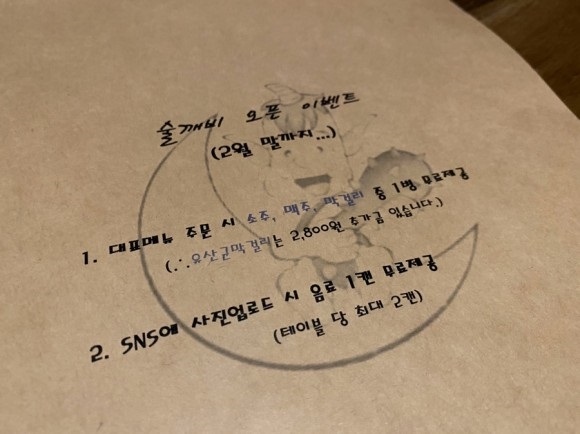 술깨비 오픈 이벤트
(2월 말까지...)
1. 대표메뉴 주문 시 소주, 맥주, 막걸리 중 1병 무료제공
(∴유산균막걸리는 2,800원 추가금 있습니다.)
2. SNS에 사진업로드 시 음료 1캔 무료제공
(테이블 당 최대 2캔)